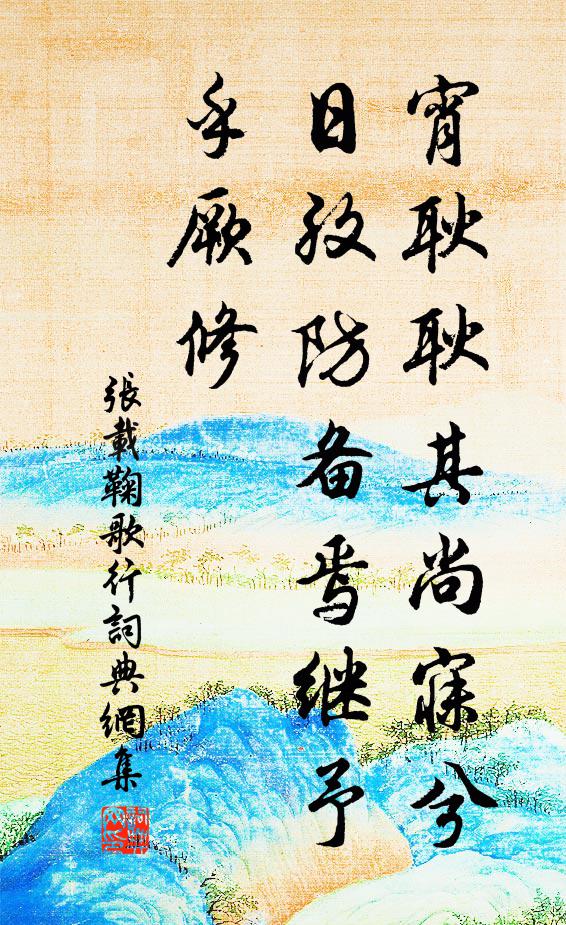 宵耿耿其尚寐兮
日孜防备焉继予
乎厥修
張載鞠歌行詞典網集